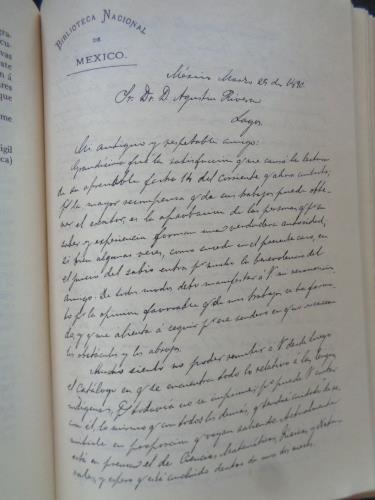 gra-
cu-
vas
ten á
ares
que
me
igil
ca)
BIBLIOTECA NACIONAL
DE
MEXICO.
México Marzo 25 de 1890.
Sr. Dr. D. Agustin Rivera
Lagos
Mi antiguo y respetable amigo:
Grandísima fué la satisfaccion q. me causó la lectura
de su apreciable fecha 14 del corriente q. ahora contesto,
la mayor recompensa q. de sus trabajos puede obte-
ner el escritor, es la aprobacion de las personas q. por su
saber y experiencia forman una verdadera autoridad,
si bien algunas veces, como sucede en el presente caso, en
el juicio del sabio entra por mucho la benevolencia del
amigo. De todos modos debo manifestar á V. mi reconocimien-
to por la opinion favorable q. de mi trabajo se ha forma-
do, y que me alienta á seguir por este sendero en q.
los obstáculos y los abrojos.
Mucho siento no poder remitir á V. desde luego
el Catálogo en q. se encuentra todo lo relativo á las lenguas
indígenas, todavía no se imprime; pero puede V. contar
con él, lo mismo q. con todos los demás, q. tendré cuidado de re-
mitirle en proporcion q. vayan saliendo. Actualmente
está en prensa el de Ciencias Matemáticas, Físicas y Natu-
rales, y espero q. está concluido dentro de uno ó dos meses.